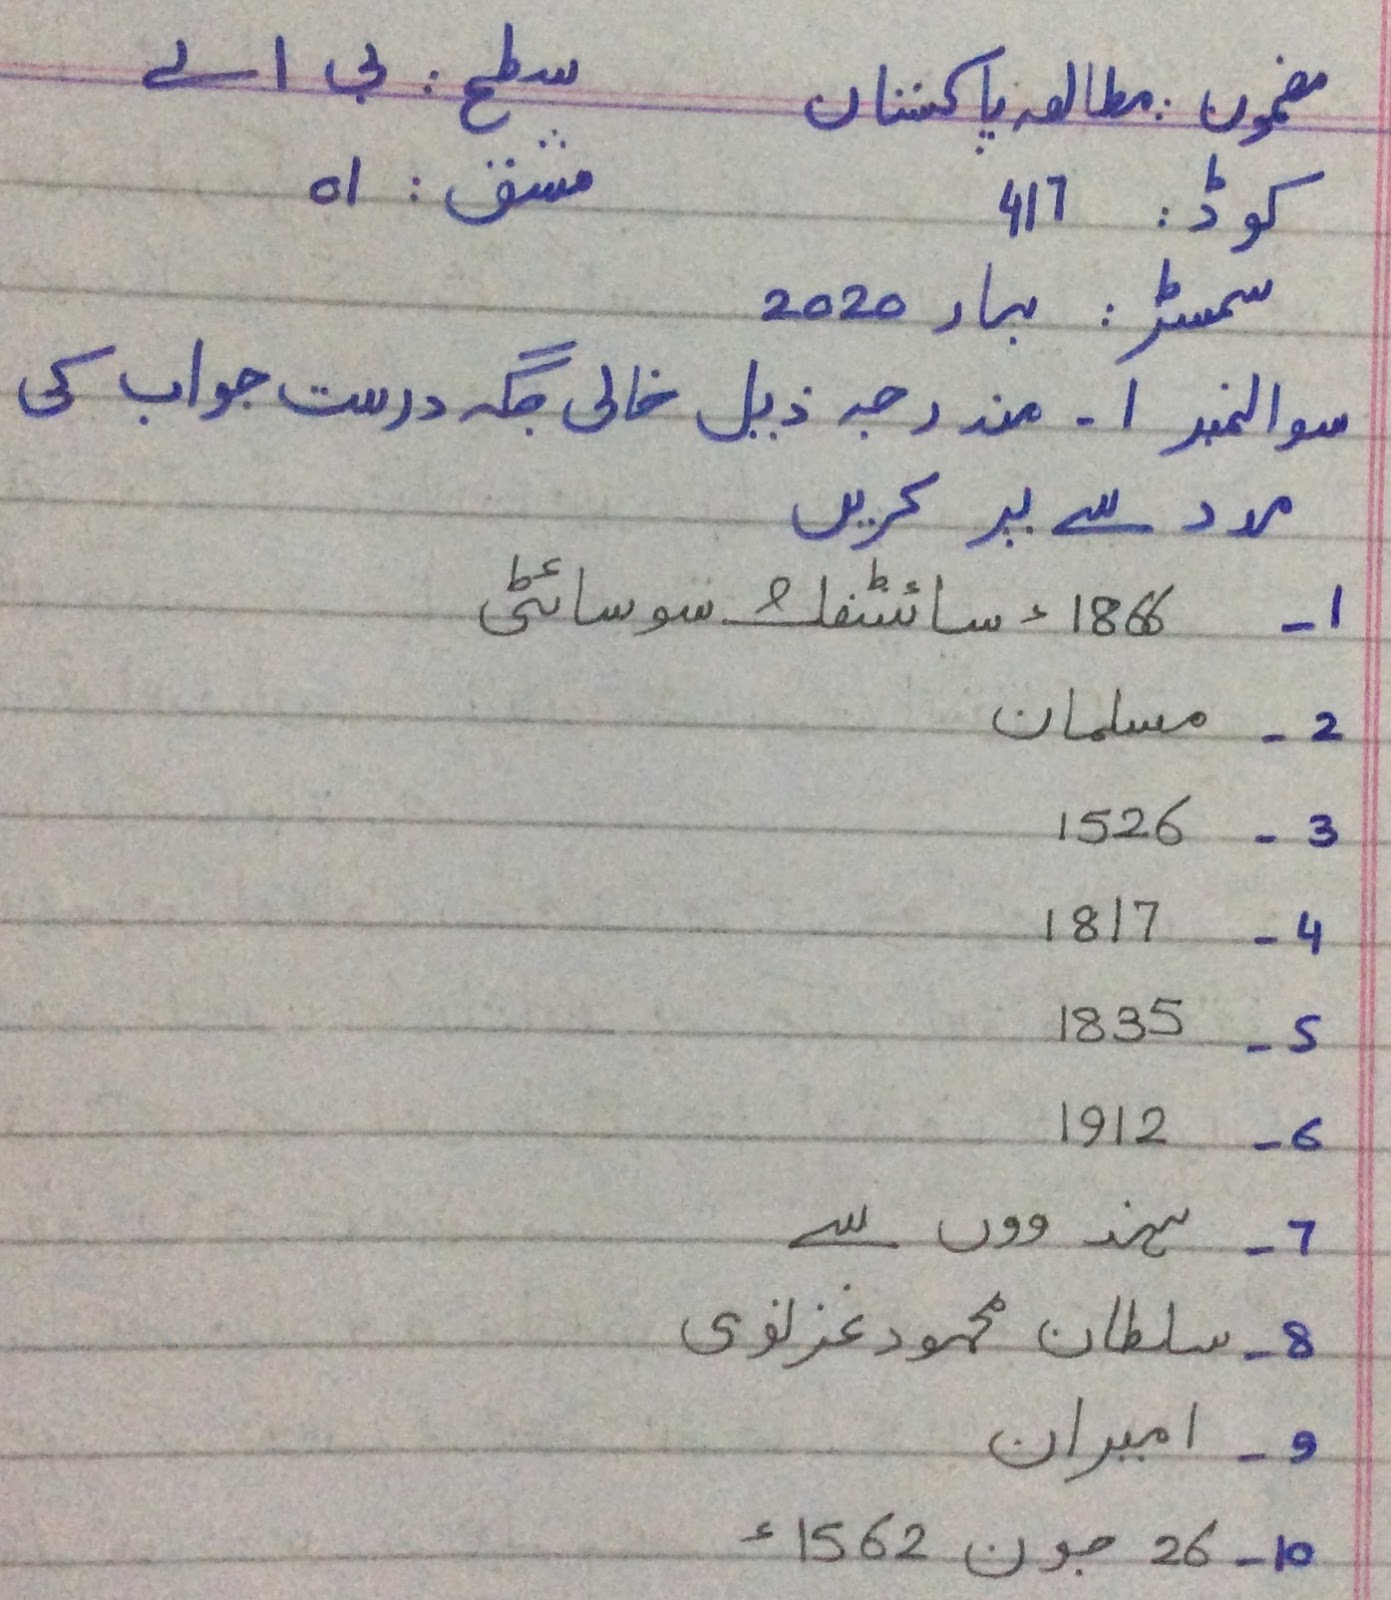 مضمون: مطالعہ پاکستان سطح: بی اے
کوڈ: 417 مشق: 01
سمسٹر: بہار 2020
سوالنمبر 1- مندرجہ ذیل خالی جگہ درست جواب کی
مدد سے پر کریں
1- 1866ء سائنٹفک سوسائٹی
2- مسلمان
3- 1526
4- 1817
5- 1835
6- 1912
7- ہندووں سے
8- سلطان محمود غزنوی
9-
10- 26 جون 1562ء